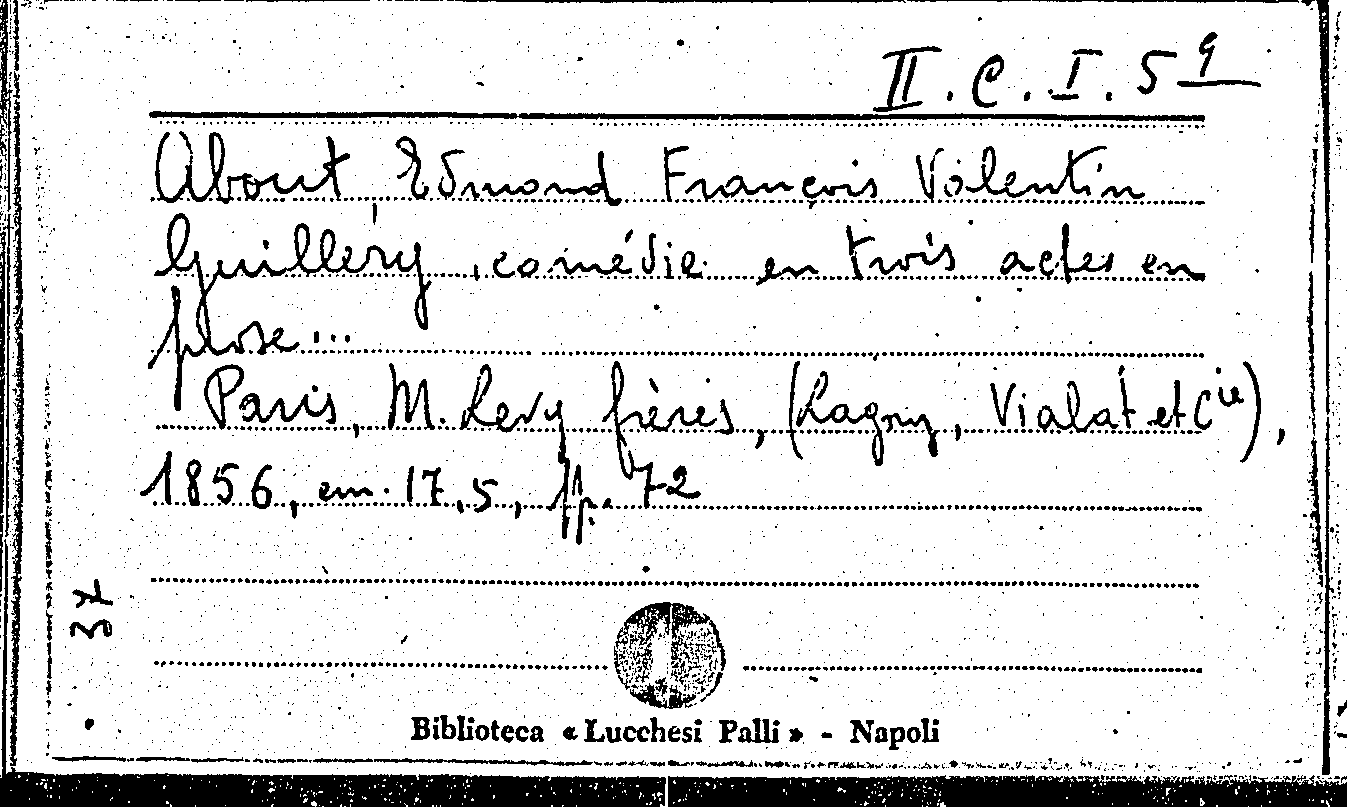 II. C. I. 5 9
About, Edmond François Valentin
Guillery, comédie en trois actes en
prose...
Paris, M. Levy frères, (Lagny, Vialat et Cie),
1856, cm. 17,5, pp. 72
37
Biblioteca « Lucchesi Palli » - Napoli